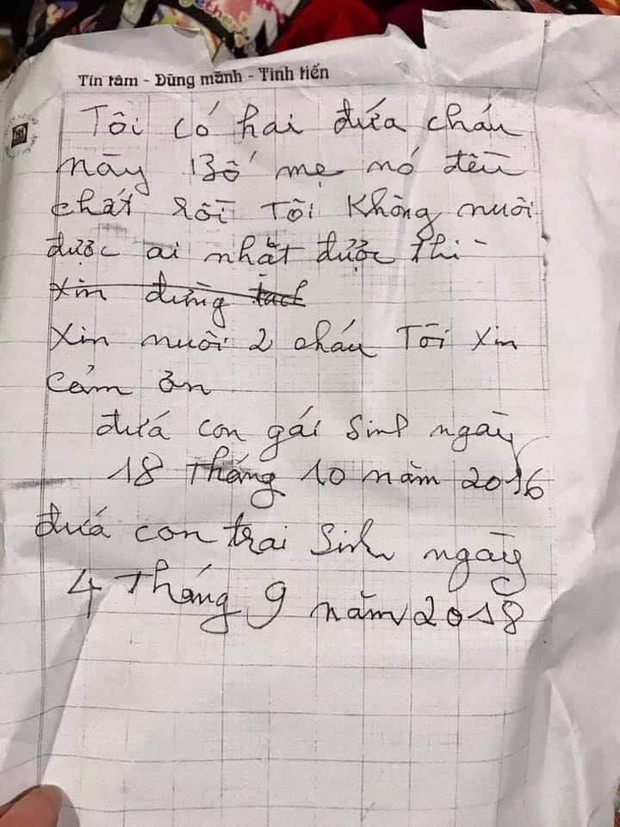 Tín tâm - Dũng mãnh - Tinh tiến
Tôi có hai đứa cháu
này Bố mẹ nó đều
chết rồi Tôi không nuôi
được ai nhặt được thì
xin đừng tach
xin nuôi 2 cháu Tôi xin
cảm ơn
đứa con gái sinh ngày
18 tháng 10 năm 2016
đuá con trai sinh ngày
4 tháng 9 năm 2018